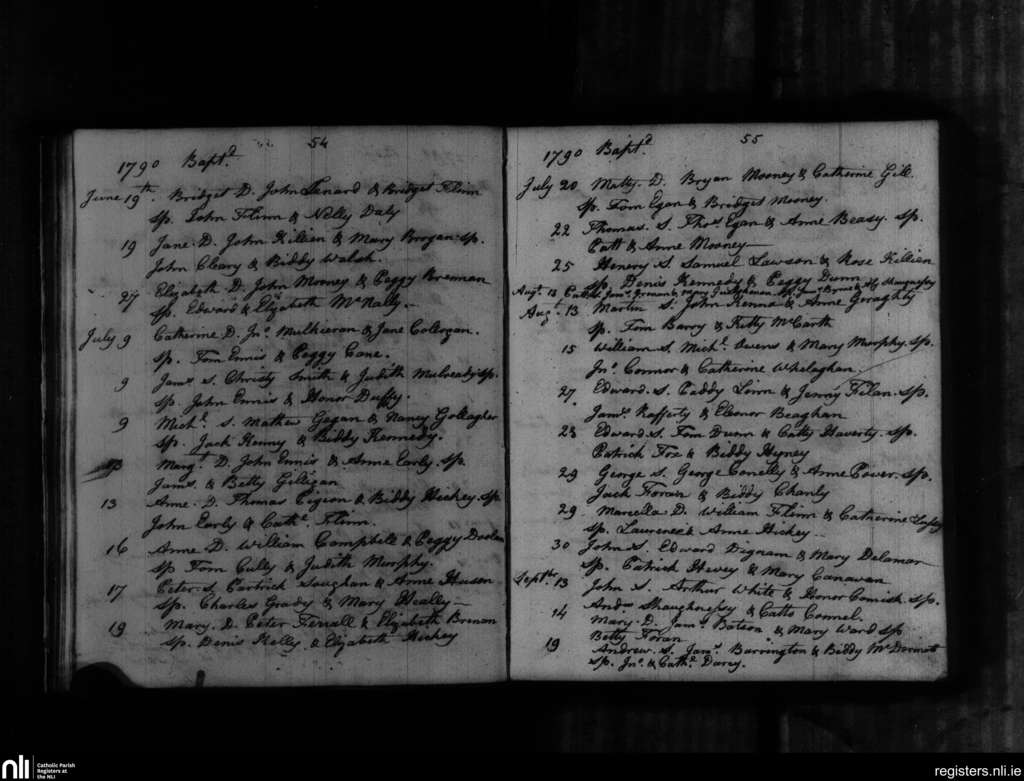 54
1790 Baptd
June 19th. Bridget D. John Lenard & Bridget Flinn
Sp. John Flinn & Nelly Daly
19 Jane D. John Killien & Mary Brogan. Sp.
John Cleary & Biddy Walsh.
27 Elizabeth D. John Mooney & Peggy Brennan
Sp. Edward & Elizabeth McNally.
July 9 Catherine D. Jno. Mulkieran & Jane
Sp. Tom Ennis & Peggy Cane.
9 Jams. S. Christy Smith & Judith Sp.
Sp. John Ennis & Honor Duffy.
9 Michl. S. Mathew Gegan & Nancy Gollagher
Sp. Jack Kenny & Biddy Kennedy.
Margt. D. John Ennis & Anne Early Sp.
Jams. & Betty Gilligan
13 Anne. D. Thomas Pigeon & Biddy Hickey. Sp
John Early & Cathe. Flinn.
16 Anne D. William Campbell & Peggy
Sp Tom Cully & Judith Morphy.
17 Peter S. Partrick & Anne
Sp. Charles Grady & Mary Heally
19 Mary. D. Peter Ferrall & Elizabeth Brenan
Sp. Denis Kelly & Elizabeth Hickey
55
1790 Baptd.
July 20 Matty. D. Bryan Mooney & Catherine Gill.
Sp. Tom Egan & Bridget Mooney.
22 Thomas. S. Thos. Egan & Anne Beasy. Sp.
Patt & Anne Mooney
25 Henery S. Samuel Lawson & Rose Killien
Sp. Denis Kennedy & Peggy Dunn
Augt. 13
Augt. 13 Martin S. John Kenna & Anne Goraghty
Sp. Tom Barry & Kitty McCarth
15 William S. Michl. Owens & Mary Morphy. Sp.
Jno. Connor & Catherine Whelaghan.
27 Edward. S. Paddy & Jenny Filan. Sp.
Jams. Rafferty & Eleonor Beaghan
23 Edward. S. Tom Dunn & Catty Haverty. Sp.
Patrick Fox & Biddy
29 George S. George Conelly & Anne Power. Sp.
Jack Foran & Biddy
29 Marcella D. William Flinn & Catherine
Sp. Laurence & Anne Hickey
30 John S. Edward Dignam & Mary Delamar
Sp. Patrick Hevey & Mary Canavan
Septbr. 13 John S. Arthur White & Honor Cornish. Sp.
Andw. Shaughnessy & Catte Connel.
14 Mary. D. Jams. & Mary Ward Sp
Betty Foran
19 Andrew. S. Jams. Barrington & Biddy McDermott
Sp. Jno. & Cathe. Darcy.
nli
Catholic Parish
Registers at
the NLI
registers.nli.ie